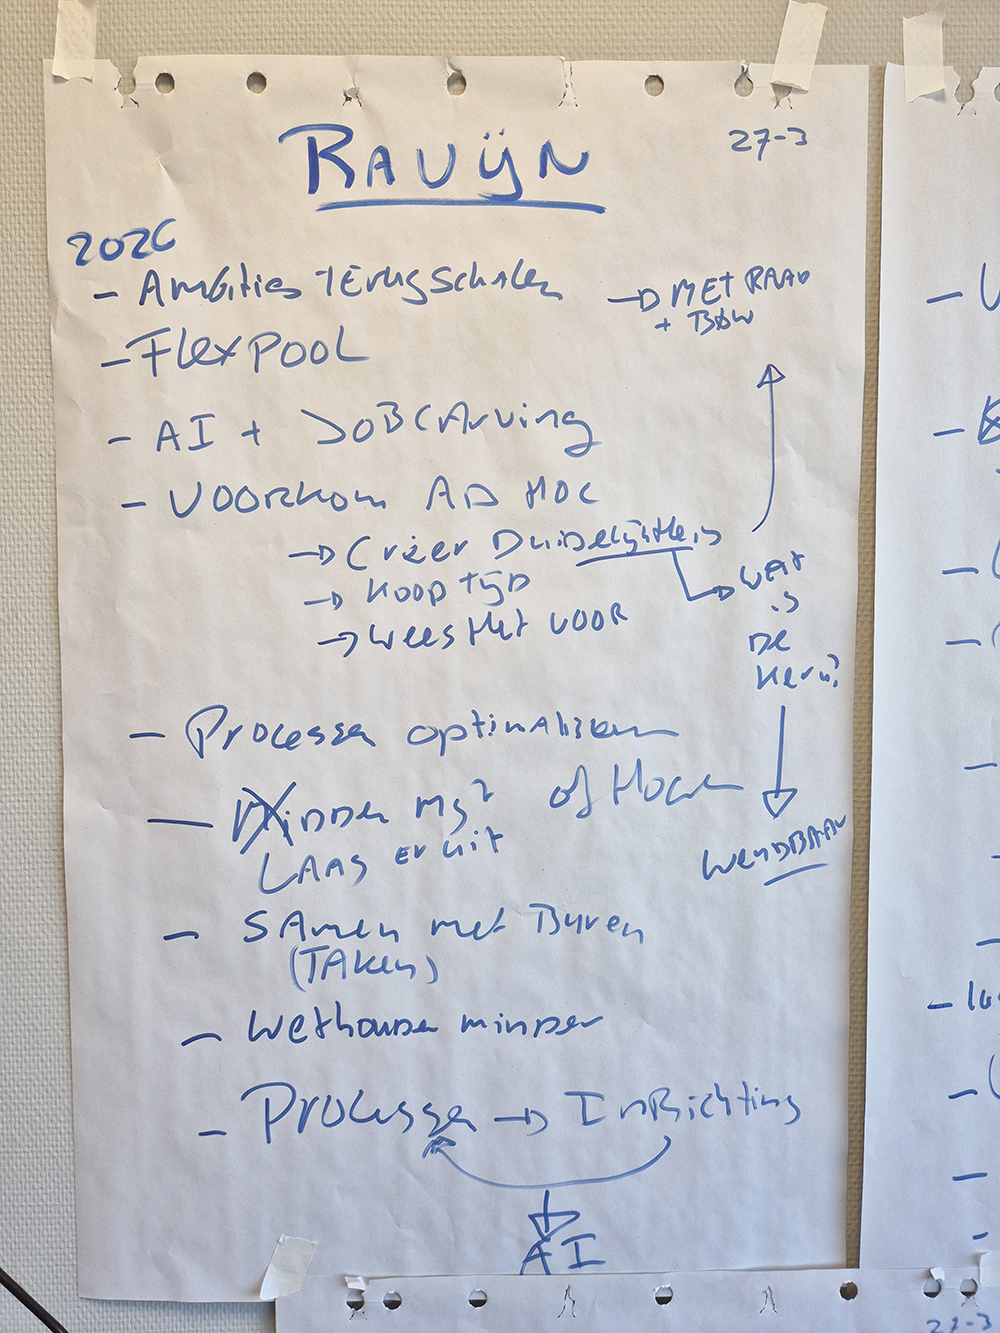 RAVIJN
27-3
2026
- Ambities terugschalen
→ MET RAAD
+ B&W
- FlexPOOL
- AI + JOBCARVING
- VOORKOM AD HOC
→ Creëer Duidelijkheid
→ KOOP tijd
→ Wees Het VOOR
→ Wat
is
De
Kern?
- Processen optimaliseren
- Minder Mg² of Hoger
LAAG er uit
WENDBAAR
- SAmen met Buren
(TAKen)
- Wethouder minder
- Processen → InRichting
AI
- 10
27-3